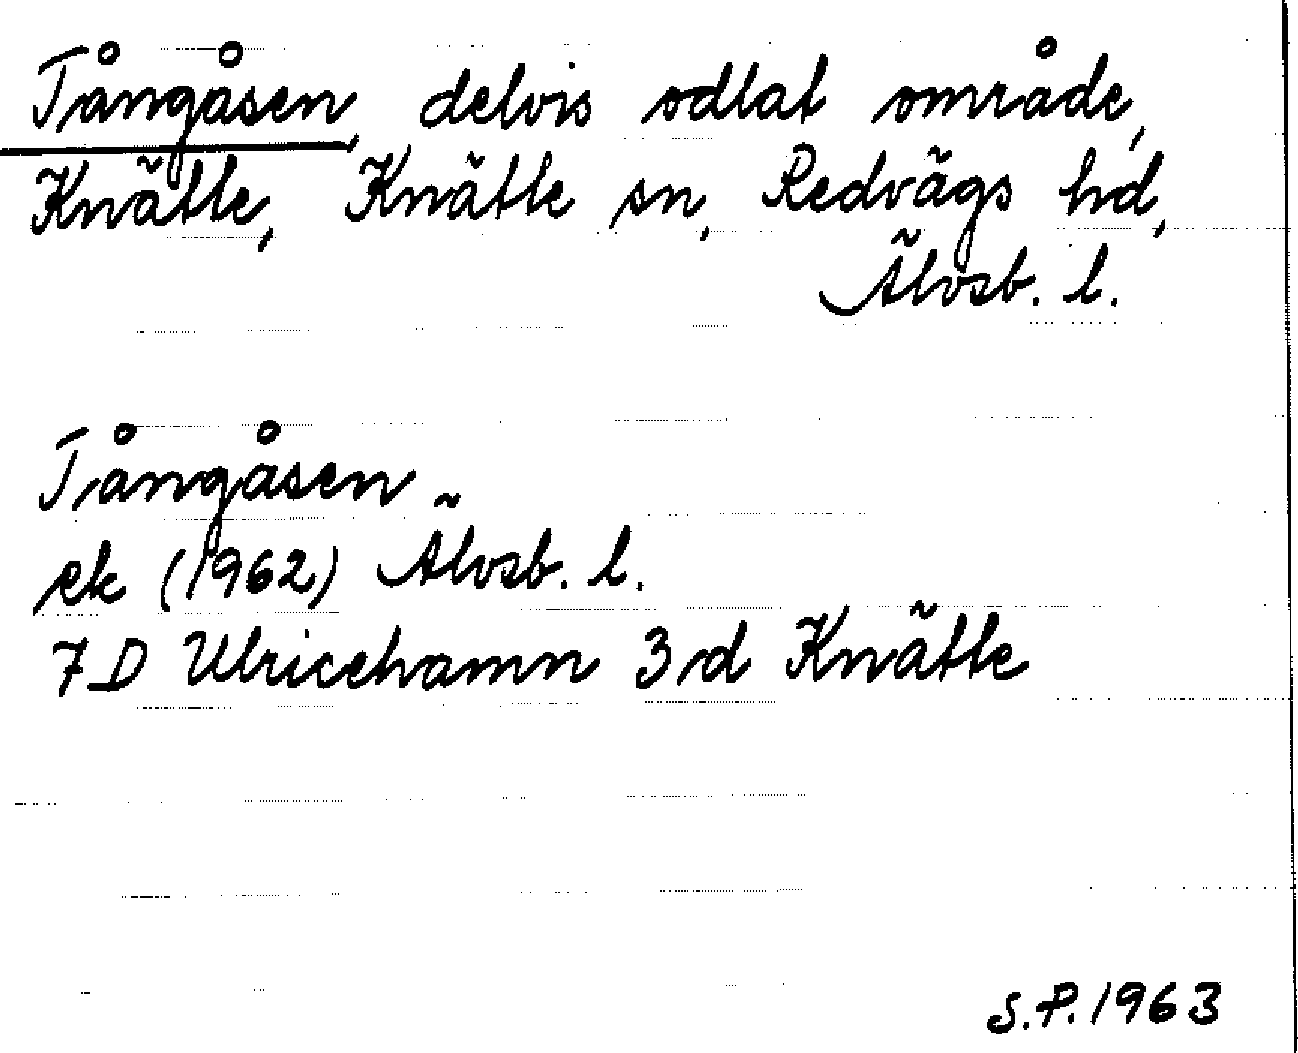 Tångåsen, delvis odlat område,
Knätte, Knätte sn, Redvägs hd,
Älvsb. l.
Tångåsen
ek (1962) Älvsb. l.
7 D Ulricehamn 3 d Knätte
S.P. 1963